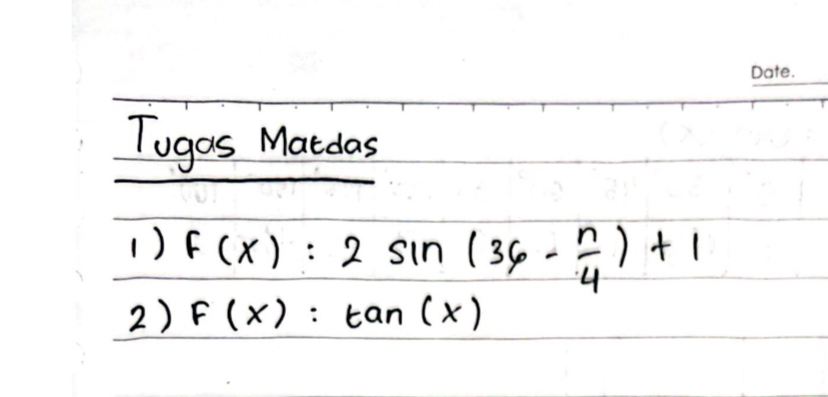 Date.
Tugas Matdas
1) F (x) : 2 sin (36 - n/4) + 1
2) F (x) : tan (x)